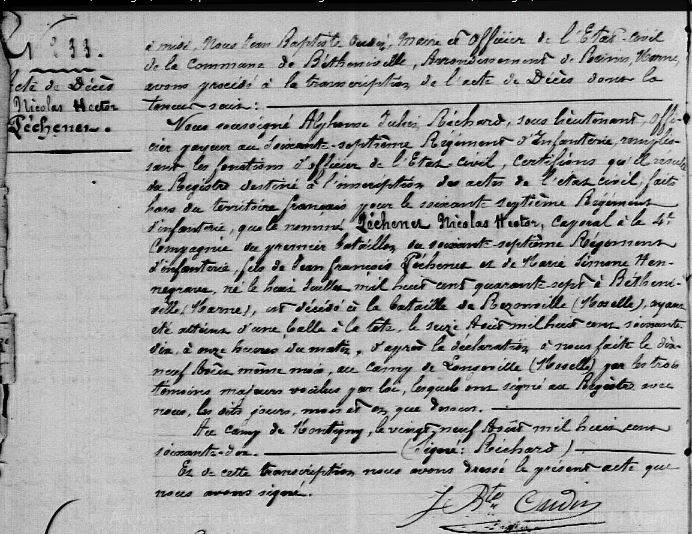 N° 33.
Acte de Décès
Nicolas Hector
Péchenet.
à midi, Nous Jean Baptiste Oudin, Maire et Officier de l'Etat-civil
de la Commune de Bétheniville, Arrondissement de Reims, Marne,
avons procédé à la transcription de l'acte de Décès dont la
teneur suit :
Nous soussigné Alphonse Jules Richard, sous lieutenant, offi-
cier payeur au soixante-septième Régiment d'Infanterie, remplis-
sant les fonctions d'officier de l'Etat-civil, certifions qu'il résulte
du Registre destiné à l'inscription des actes de l'état civil, faits
hors du territoire français pour le soixante septième Régiment
d'infanterie, que le nommé Péchenet Nicolas Hector, caporal à la 4e
Compagnie du premier bataillon du soixante-septième Régiment
d'infanterie, fils de Jean françois Péchenet et de Marie Simone Hen-
negrave, né le huit Juillet mil huit cent quarante-sept à Bétheni-
ville (Marne), est décédé à la bataille de Rezonville (Moselle), ayant
été atteint d'une balle à la tête, le seize Août mil huit cent soixante
dix, à onze heures du matin, d'après la déclaration à nous faite le dix-
neuf même mois, au camp de Longeville (Moselle) par les trois
témoins majeurs voulus par loi, lesquels ont signé au Registre avec
nous, les dits jours, mois et an que dessus.
Au camp de Montigny, le vingt neuf Août mil huit cent
soixante-dix. (Signé : Richard)
Et de cette transcription nous avons dressé le présent acte que
nous avons signé.
J Bte Oudin